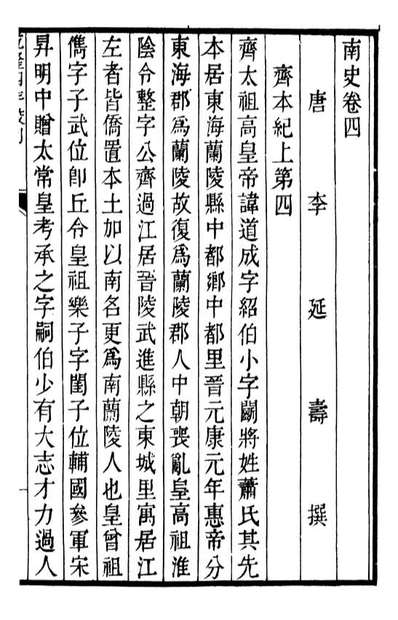 南史卷四
唐 李 延 壽 撰
齊本紀上第四
齊太祖高皇帝諱道成字紹伯小字鬭將姓蕭氏其先
本居東海蘭陵縣中都鄉中都里晉元康元年惠帝分
東海郡爲蘭陵故復爲蘭陵郡人中朝喪亂皇高祖淮
陰令整字公齊過江居晉陵武進縣之東城里寓居江
左者皆僑置本土加以南名更爲南蘭陵人也皇曾祖
儁字子武位卽丘令皇祖樂子字閨子位輔國參軍宋
昇明中贈太常皇考承之字嗣伯少有大志才力過人